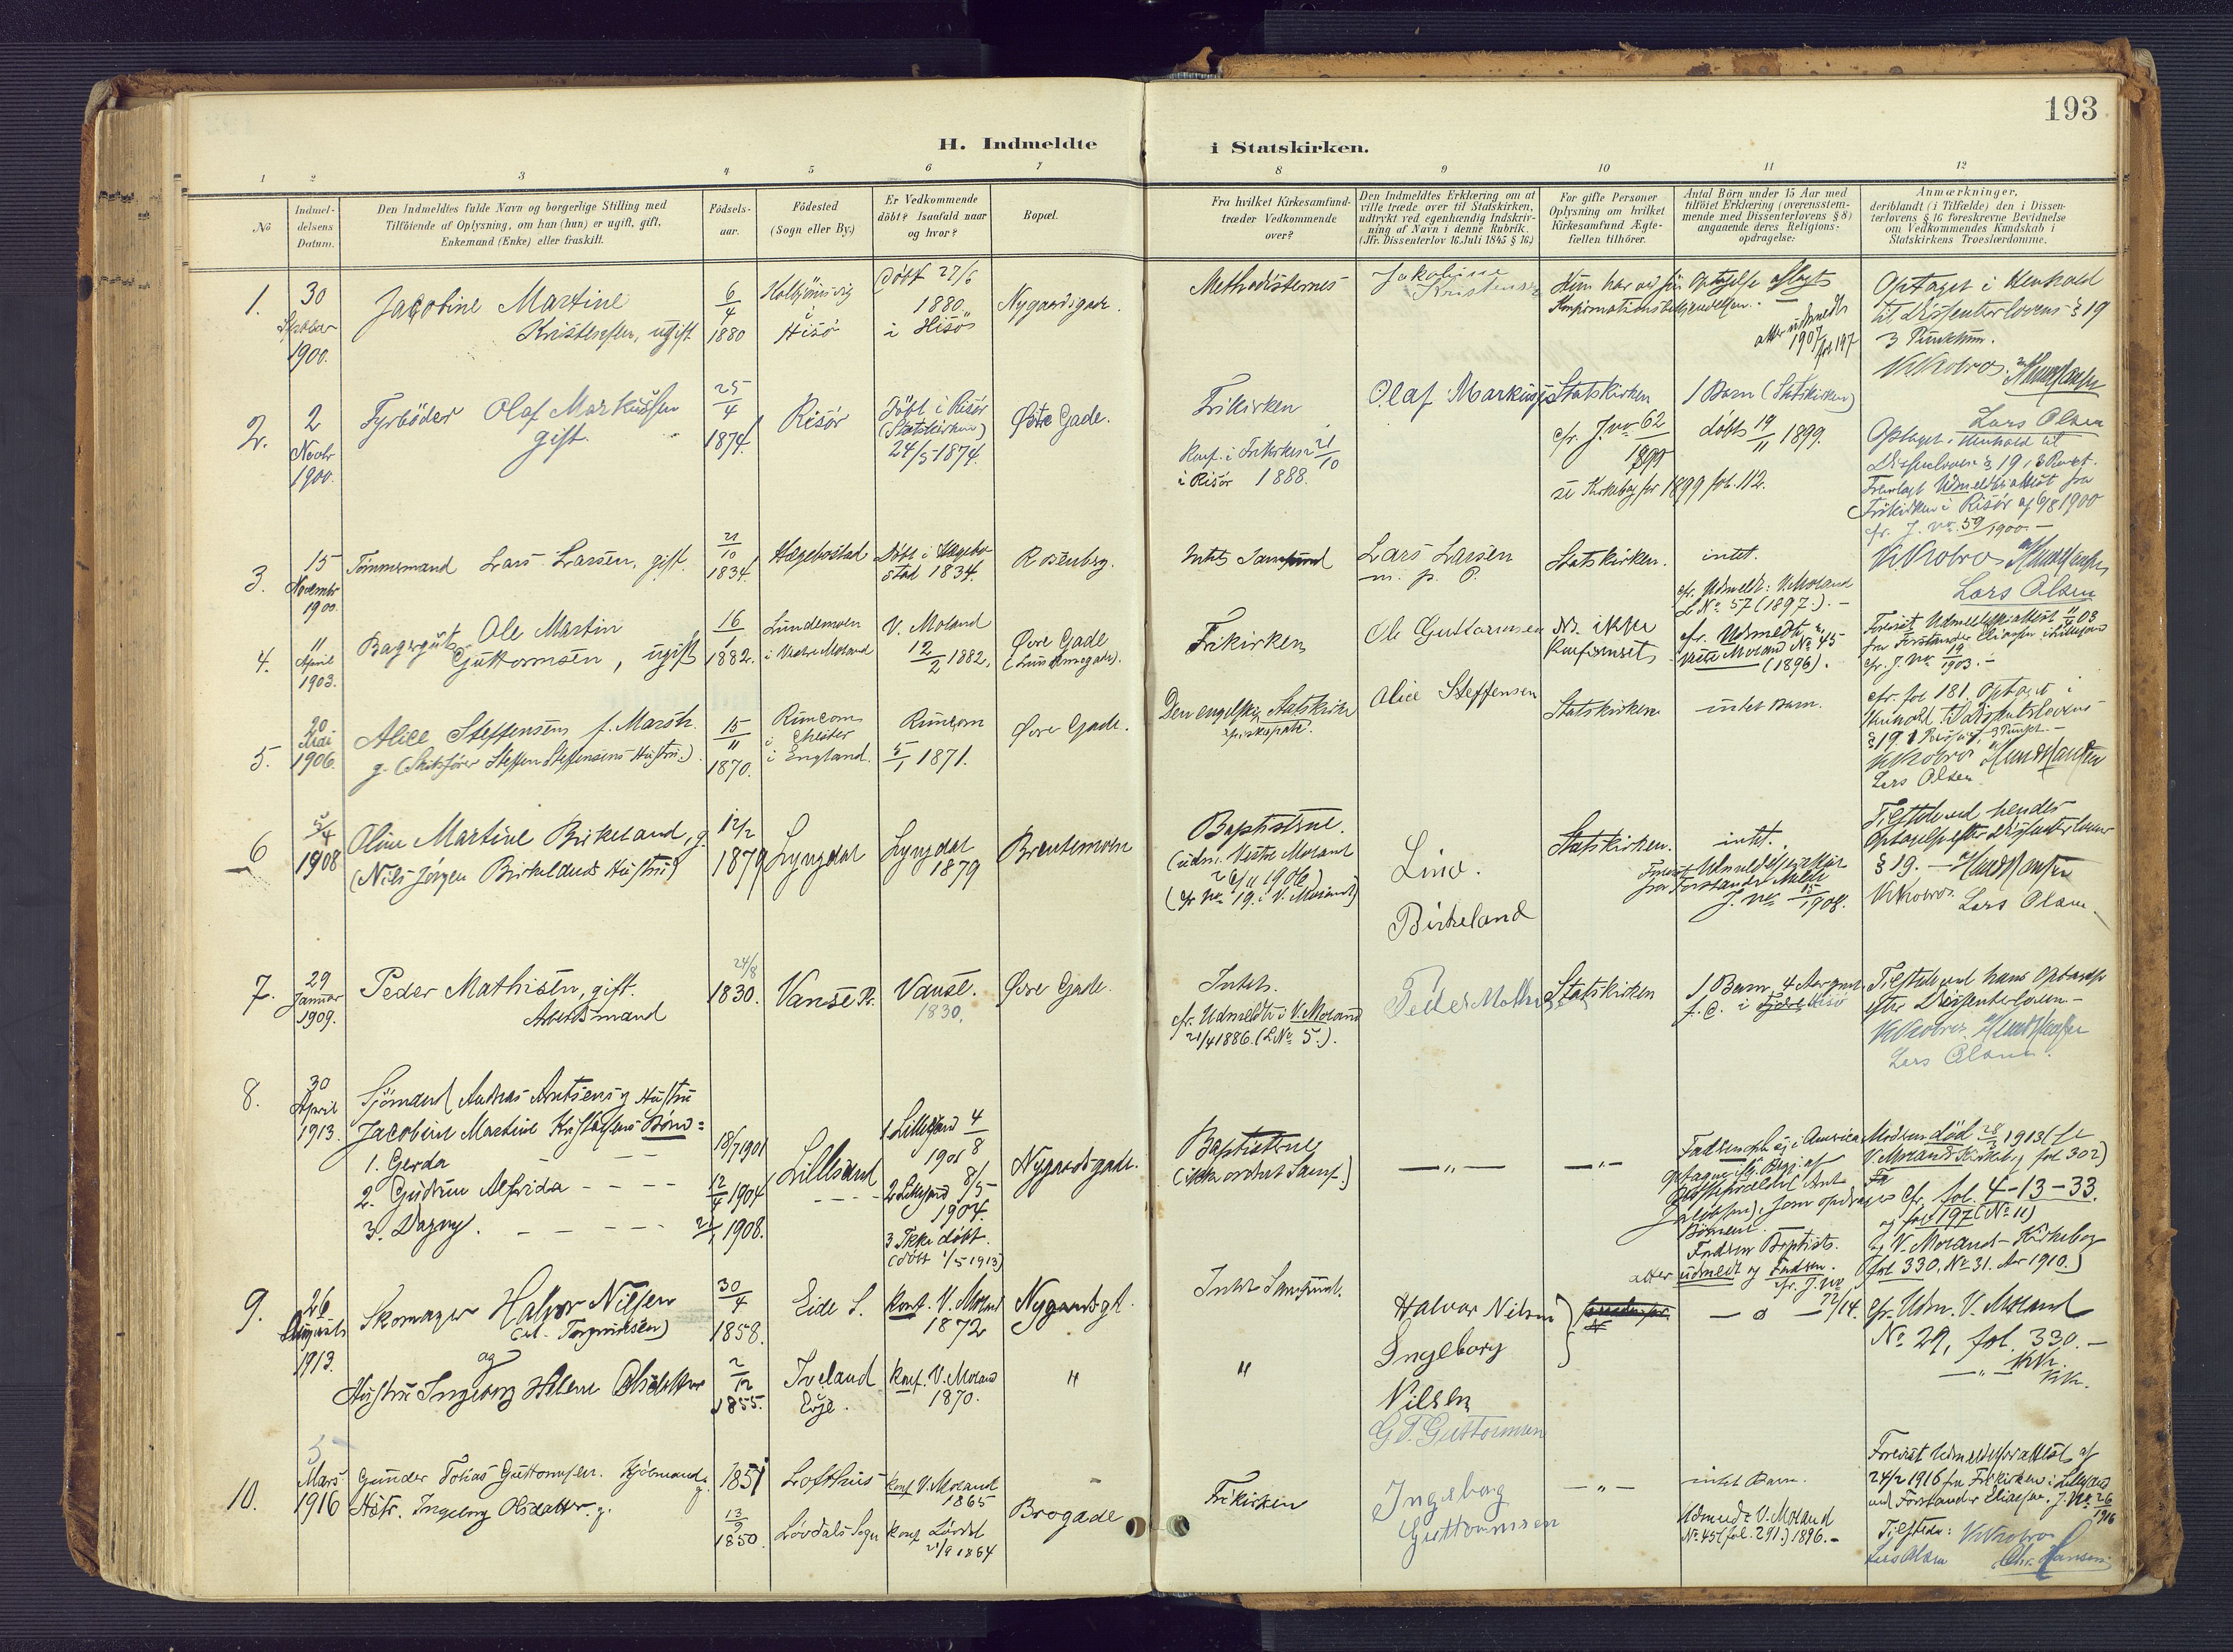 193
H. Indmeldte i Statskirken.
1 2 3 4 5 6 7 8 9 10 11 12
No
Indmel-
delsens
Datum.
Den Indmeldtes fulde Navn og borgerlige Stilling med
Tilföiende af Oplysning, om han (hun) er ugift, gift,
Enkemand (Enke) eller fraskilt.
Födsels-
aar.
Födested
(Sogn eller By.)
Er Vedkommende
döbt? Isaafald naar
og hvor?
Bopæl.
Fra hvilket Kirkesamfund
træder Vedkommende
over?
Den Indmeldtes Erklæring om at
ville træde over til Statskirken,
udtrykt ved egenhændig Indskriv-
ning af Navn i denne Rubrik.
(Jfr. Dissenterlov 16 Juli 1845 § 16.)
For gifte Personer
Oplysning om hvilket
Kirkesamfund Ægte-
fællen tilhörer.
Antal Börn under 15 Aar med
tilföiet Erklæring (overensstem-
mende med Dissenterlovens § 8)
angaaende deres Religions-
opdragelse:
Anmærkninger,
deriblandt (i Tilfælde) den i Dissen-
terlovens § 16 foreskrevne Bevidnelse
om Vedkommendes Kundskab i
Statskirkens Troeslærdomme.
1.
30
1900.
Jacobine Martine
Kristensen, ugift
6/4
1880
i
Hisö
Döbt 27/6
1880.
i Hisö
Nygardsgade.
Methodisternes
Jakobine
Kristensen
Hun har ved sin Optagelse aflagt
Konfirmationsbekjendelsen.
atter udmeldt
1907 fol 197
Optaget i Henhold
til Dissenterlovens § 19
3 Punktum.
2.
2
Novbr
1900.
Fyrböder Olaf Markussen
gift.
25/4
1874.
Risör
Döbt i Risör
(Statskirken)
24/5 1874.
Östre Gade.
Frikirken
Konf. i Frikirken 21/10
i Risör 1888.
Olaf Markus
Statskirken
cfr. J. no 62
1899
se Kirkebog for 1899 fol. 112.
1 Barn (Statskirken)
döbt 19/11 1899.
Lars Olsen
Optaget i Henhold til
§ 19, 3 Punkt.
Fremlagt Udmeldelsesattest fra
Frikirken i Risör af 6/8 1900
cfr. J. no. 59/1900.
3.
15
Novembr
1900.
Tömmermand Lars Larsen, gift.
21/10
1834.
Hægebostad
Döbt i Hægebo-
stad 1834.
Rosenberg.
Intet Samfund
Lars Larsen
m. p. P.
Statskirken.
intet.
cfr. Udmeldt: V. Moland
L No. 57 (1897.).
Lars Olsen
4.
11
April
1903.
Ole Martin
Guttormsen, ugift
16/1
1882.
Lundemoen
i Vestre Moland
V. Moland
12/2 1882.
Övre Gade
Frikirken
Ole Guttormsen
N. ikke
Konfirmeret
cfr. Udmeldte
Vestre Moland No 45
(1896).
cfr. J. No 19/1903.
5.
20
Mai
1906.
Alice Steffensen f. Marsh.
g. (Skibsförer Steffen Steffensens Hustru.)
15/11
1870.
Runcorn
i Chester
i England.
Runcorn
5/1 1871.
Övre Gade.
Den engelske Statskirke
Alice Steffensen
Statskirken
intet Barn.
cfr. fol 181. Optaget i
Henhold til Dissenterlovens
Lars Olsen
6
5/4
1908
Oline Martine Birkeland, g.
(Nils Jörgen Birkelands Hustru)
12/2
1879
Lyngdal
Lyngdal
1879
Brentemoen
Baptisterne.
(udm. Vestre Moland
(cfr No 19. i V. Moland)
Lina.
Birkeland
Statskirken.
intet.
J. no 15/1908.
§ 19.
Lars Olsen
7.
29
Januar
1909.
Peder Mathisen, gift.
Arbeidsmand
24/8
1830.
Vanse Pr.
Vanse.
1830.
Övre Gade.
Intet.
cfr. Udmeldte i V. Moland
21/4 1886. (L No 5.).
Peder Mathi
Statskirken
1 Barn, 4 Aar gml.
Tilstede ved hans Optagelse
efter Dissenterloven.
Lars Olsen.
8.
30
April
1913.
Sjömand Andreas Arntsens og Hustru
Jacobine Martine Kristensens Börn:
1. Gerda
2. Gudrun Alfrida
3. Dagny.
18/7 1901
12/4 1904
21/1 1908.
Lillesand
1 Lillesand 4/8
1901
2 Lillesand 8/5
1904.
3 Ikke döbt.
(döbt 1/5 1913)
Nygardsgade.
Baptisterne
(ikke ordnet Samf.)
— „ —
— „ —
Börnene.
Fadren Baptist.
atter udmeldt af Fadren.
cfr. J. no
Modren död 28/3 1913 (se
V. Molands Kirkebog fol 302)
Cfr. fol. 4-13-33.
og fol 197 (No 11)
og V. Moland Kirkebog
fol 330. No 31. Aar 1910.)
9.
26
Augusts
1913.
Skomager Halvor Nilsen
og
Hustru Ingeborg Helene Olsdatter
30/4
1858.
2/12
1855.
Eide S.
Iveland
Evje.
konf. V. Moland
1872
Konf. V. Moland
1870.
Nygaardsgt.
"
Intet Samfund.
"
Halvor Nilsen
Ingeborg
Nilsen
— 0 —
cfr. Udm. V. Moland
No 29, fol. 330.
10.
5
Mars
1916
Gunder Tobias Guttormsen. Sjömand g.
Hstr. Ingeborg Olsdatter. g.
1851
13/9
1850.
Lofthus
Lövdals Sogn
konf V. Moland
1865
konf Lövdal
21/9 1864
Brogade
Frikirken
G. T. Guttormsen
Ingeborg
Guttormsen
— „ —
intet Barn.
Udmeldt V. Moland
No 45 (fol. 291.) 1896.
Forevist Udmeldelsesattest af
24/2 1916 fra Frikirken i Lillesand
ved Forstander Eliassen. J. No 26
1916
Tilstede:
Lars Olsen Chr. Hansen